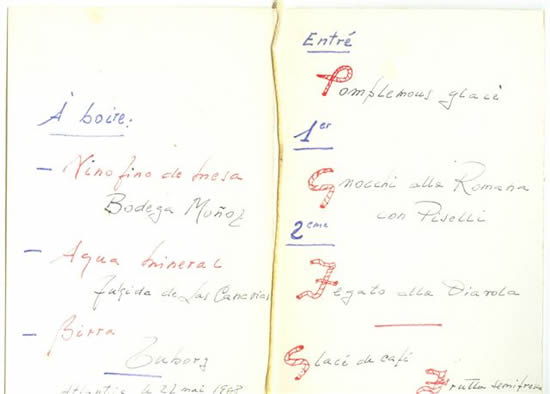 À boire:
- Vino fino de mesa
Bodega Muñoz
- Aqua mineral
Fulgida de Las Canarias
- Birra
Tuborg
Atlantic le 27 mai
Entré
Pomplemous glacé
1er
Gnocchi alla Romana
con Piselli
2eme
Fegato alla Diavola
Glacé de café
Frutta semifredda